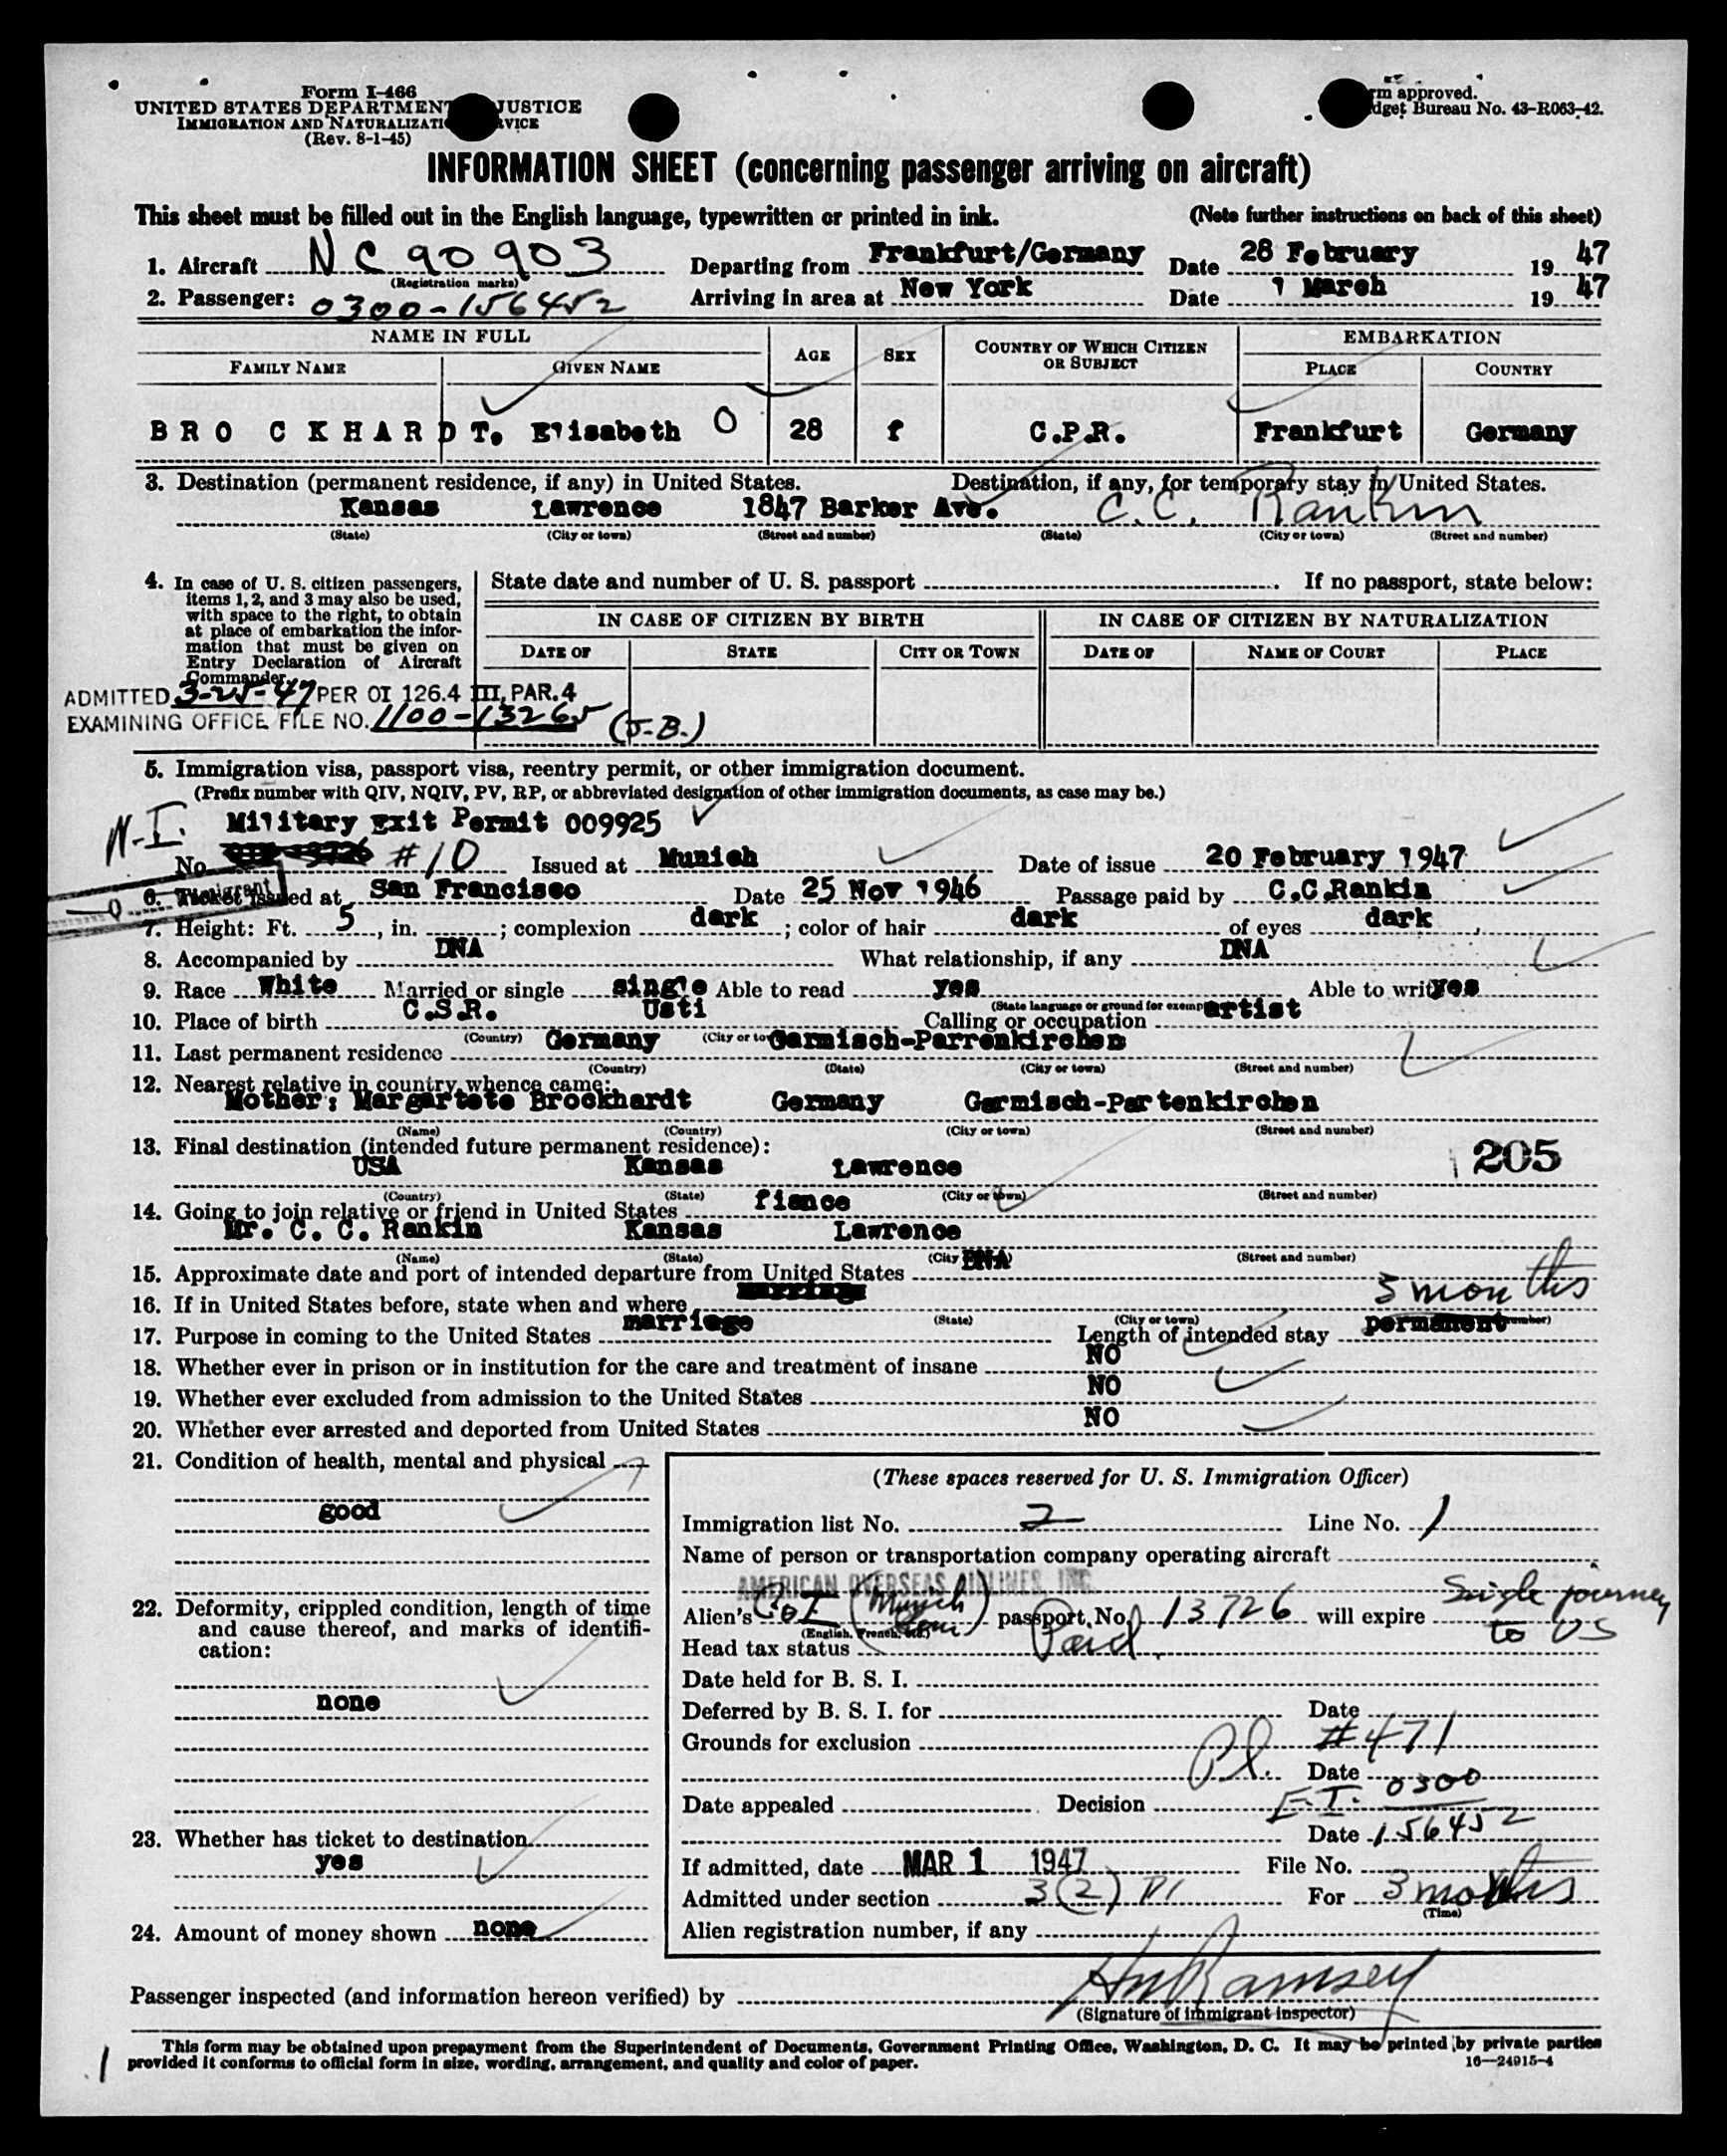 Form I-466
UNITED STATES DEPARTMENT JUSTICE
IMMIGRATION AND NATURALIZATI RVICE
(Rev. 8-1-45)
rm approved.
dget Bureau No. 43-R063-42.
INFORMATION SHEET (concerning passenger arriving on aircraft)
This sheet must be filled out in the English language, typewritten or printed in ink. (Note further instructions on back of this sheet)
1. Aircraft NC 90903 Departing from Frankfurt/Germany Date 28 February 1947
(Registration marks)
2. Passenger: 0300-156452 Arriving in area at New York Date 1 March 1947
NAME IN FULL AGE SEX COUNTRY OF WHICH CITIZEN OR SUBJECT EMBARKATION
FAMILY NAME GIVEN NAME PLACE COUNTRY
BROCKHARDT. Elisabeth 0 28 f C.P.R. Frankfurt Germany
3. Destination (permanent residence, if any) in United States. Destination, if any, for temporary stay in United States.
Kansas Lawrence 1847 Barker Ave. C.C. Rankin
(State) (City or town) (Street and number) (State) (City or town) (Street and number)
4. In case of U. S. citizen passengers, items 1, 2, and 3 may also be used, with space to the right, to obtain at place of embarkation the information that must be given on Entry Declaration of Aircraft Commander.
State date and number of U. S. passport . If no passport, state below:
IN CASE OF CITIZEN BY BIRTH IN CASE OF CITIZEN BY NATURALIZATION
DATE OF STATE CITY OR TOWN DATE OF NAME OF COURT PLACE
ADMITTED 3-25-47 PER OI 126.4 III, PAR.4
EXAMINING OFFICE FILE NO. 1100-13265 (J.B.)
5. Immigration visa, passport visa, reentry permit, or other immigration document.
(Prefix number with QIV, NQIV, PV, RP, or abbreviated designation of other immigration documents, as case may be.)
N-I. Military Exit Permit 009925
No. #10 Issued at Munich Date of issue 20 February 1947
6. Ticket issued at San Francisco Date 25 Nov 1946 Passage paid by C.C.Rankin
7. Height: Ft. 5, in. ; complexion dark; color of hair dark of eyes dark
8. Accompanied by DNA What relationship, if any DNA
9. Race White Married or single single Able to read yes Able to write yes
(State language or ground for exemp
10. Place of birth C.S.R. Usti Calling or occupation artist
(Country) (City or to
11. Last permanent residence Germany Garmisch-Parrenkirchen
(Country) (State) (City or town) (Street and number)
12. Nearest relative in country whence came:
Mother: Margartete Brockhardt Germany Garmisch-Partenkirchen
(Name) (Country) (City or town) (Street and number)
13. Final destination (intended future permanent residence): 205
USA Kansas Lawrence
(Country) (State) (City or town) (Street and number)
14. Going to join relative or friend in United States fiance
Mr. C. C. Rankin Kansas Lawrence
(Name) (State) (City (Street and number)
15. Approximate date and port of intended departure from United States DNA
16. If in United States before, state when and where marriage 3 months
(State) (City or town)
17. Purpose in coming to the United States marriage Length of intended stay permanent
18. Whether ever in prison or in institution for the care and treatment of insane NO
19. Whether ever excluded from admission to the United States NO
20. Whether ever arrested and deported from United States NO
21. Condition of health, mental and physical
good
22. Deformity, crippled condition, length of time and cause thereof, and marks of identification:
none
23. Whether has ticket to destination
yes
24. Amount of money shown none
(These spaces reserved for U. S. Immigration Officer)
Immigration list No. 2 Line No. 1
Name of person or transportation company operating aircraft
AMERICAN OVERSEAS AIRLINES, INC.
Alien's C of I (Munich Ger.) passport No. 13726 will expire Single journey to US
(English, French, etc.)
Head tax status Paid
Date held for B. S. I.
Deferred by B. S. I. for Date
Grounds for exclusion #471
Pl. Date
Date appealed Decision E.I. 0300
Date 156452
If admitted, date MAR 1 1947 File No.
Admitted under section 3(2) For 3 months
(Time)
Alien registration number, if any
Passenger inspected (and information hereon verified) by Ramsey
(Signature of immigrant inspector)
This form may be obtained upon prepayment from the Superintendent of Documents, Government Printing Office, Washington, D. C. It may be printed by private parties
provided it conforms to official form in size, wording, arrangement, and quality and color of paper. 16—24915-4